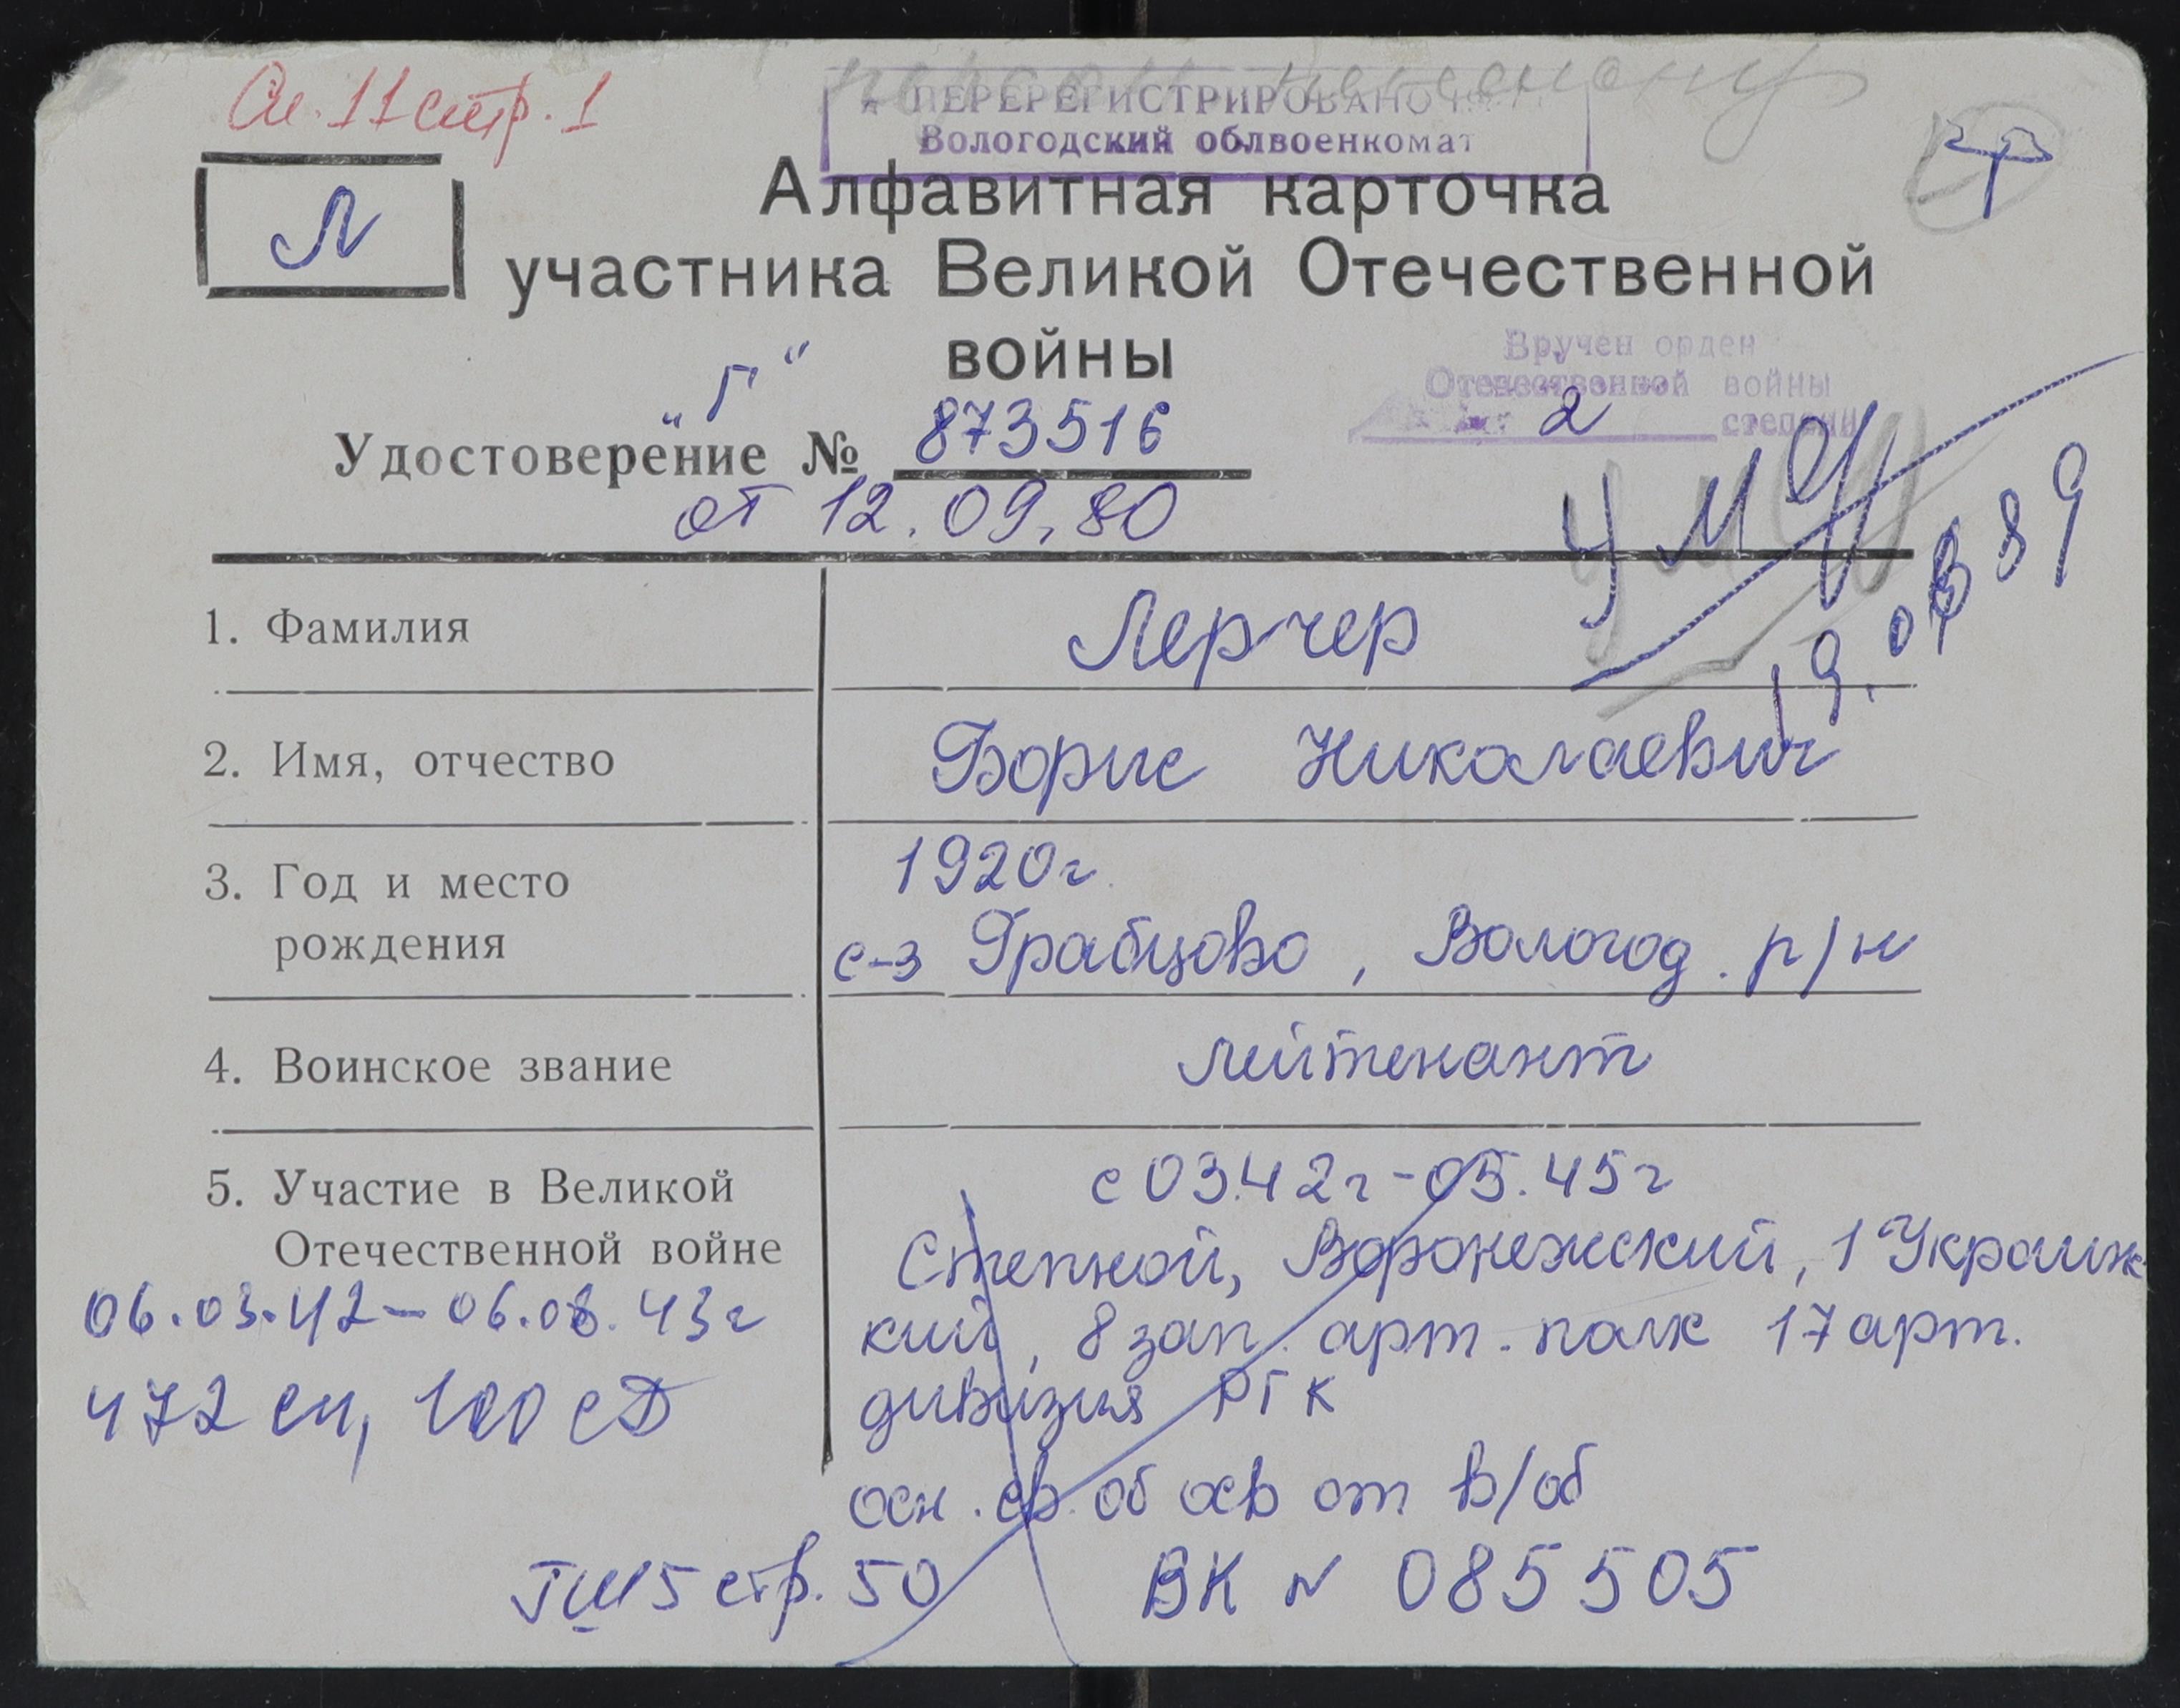 См. 11 стр. 1
ПЕРЕРЕГИСТРИРОВАНО
Вологодский облвоенкомат
Л
Алфавитная карточка
участника Великой Отечественной
войны
Вручен орден
Отечественной войны
2 степени
„Г“
Удостоверение № 873516
от 12.09.80
умер
1. Фамилия Лерчер
2. Имя, отчество Борис Николаевич
3. Год и место 1920г.
рождения с-з Грабцово, Вологод. р/н
4. Воинское звание лейтенант
5. Участие в Великой с 03.42г - 05.45г
Отечественной войне Степной, Воронежский, 1 Украинс
кий, 8 зап. арт. полк 17 арт.
дивизия РГК
06.03.42 - 06.08.43г
472 сп, 100 сД
осн. св. об осв от в/об
стр. 50 ВК № 085505